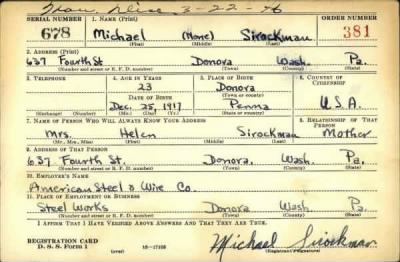 3-22-76
SERIAL NUMBER 1. NAME (Print) ORDER NUMBER
678 Michael (None) Sirockman 381
(First) (Middle) (Last)
2. ADDRESS (Print)
637 Fourth St Donora Wash. Pa.
(Number and street or R. F. D. number) (Town) (County) (State)
3. TELEPHONE 4. AGE IN YEARS 5. PLACE OF BIRTH 6. COUNTRY OF CITIZENSHIP
23 Donora
DATE OF BIRTH (Town or county)
Dec. 25, 1917 Penna U.S.A.
(Exchange) (Number) (Mo.) (Day) (Yr.) (State or country)
7. NAME OF PERSON WHO WILL ALWAYS KNOW YOUR ADDRESS 8. RELATIONSHIP OF THAT PERSON
Mrs. Helen Sirockman Mother
(Mr., Mrs., Miss) (First) (Middle) (Last)
9. ADDRESS OF THAT PERSON
637 Fourth St. Donora. Wash. Pa.
(Number and street or R. F. D. number) (Town) (County) (State)
10. EMPLOYER'S NAME
American Steel & Wire Co.
11. PLACE OF EMPLOYMENT OR BUSINESS
Steel Works Donora Wash. Pa.
(Number and street or R. F. D. number) (Town) (County) (State)
I AFFIRM THAT I HAVE VERIFIED ABOVE ANSWERS AND THAT THEY ARE TRUE.
REGISTRATION CARD
D. S. S. Form 1 (over) 16-17105 Michael Sirockman
(Registrant's signature)